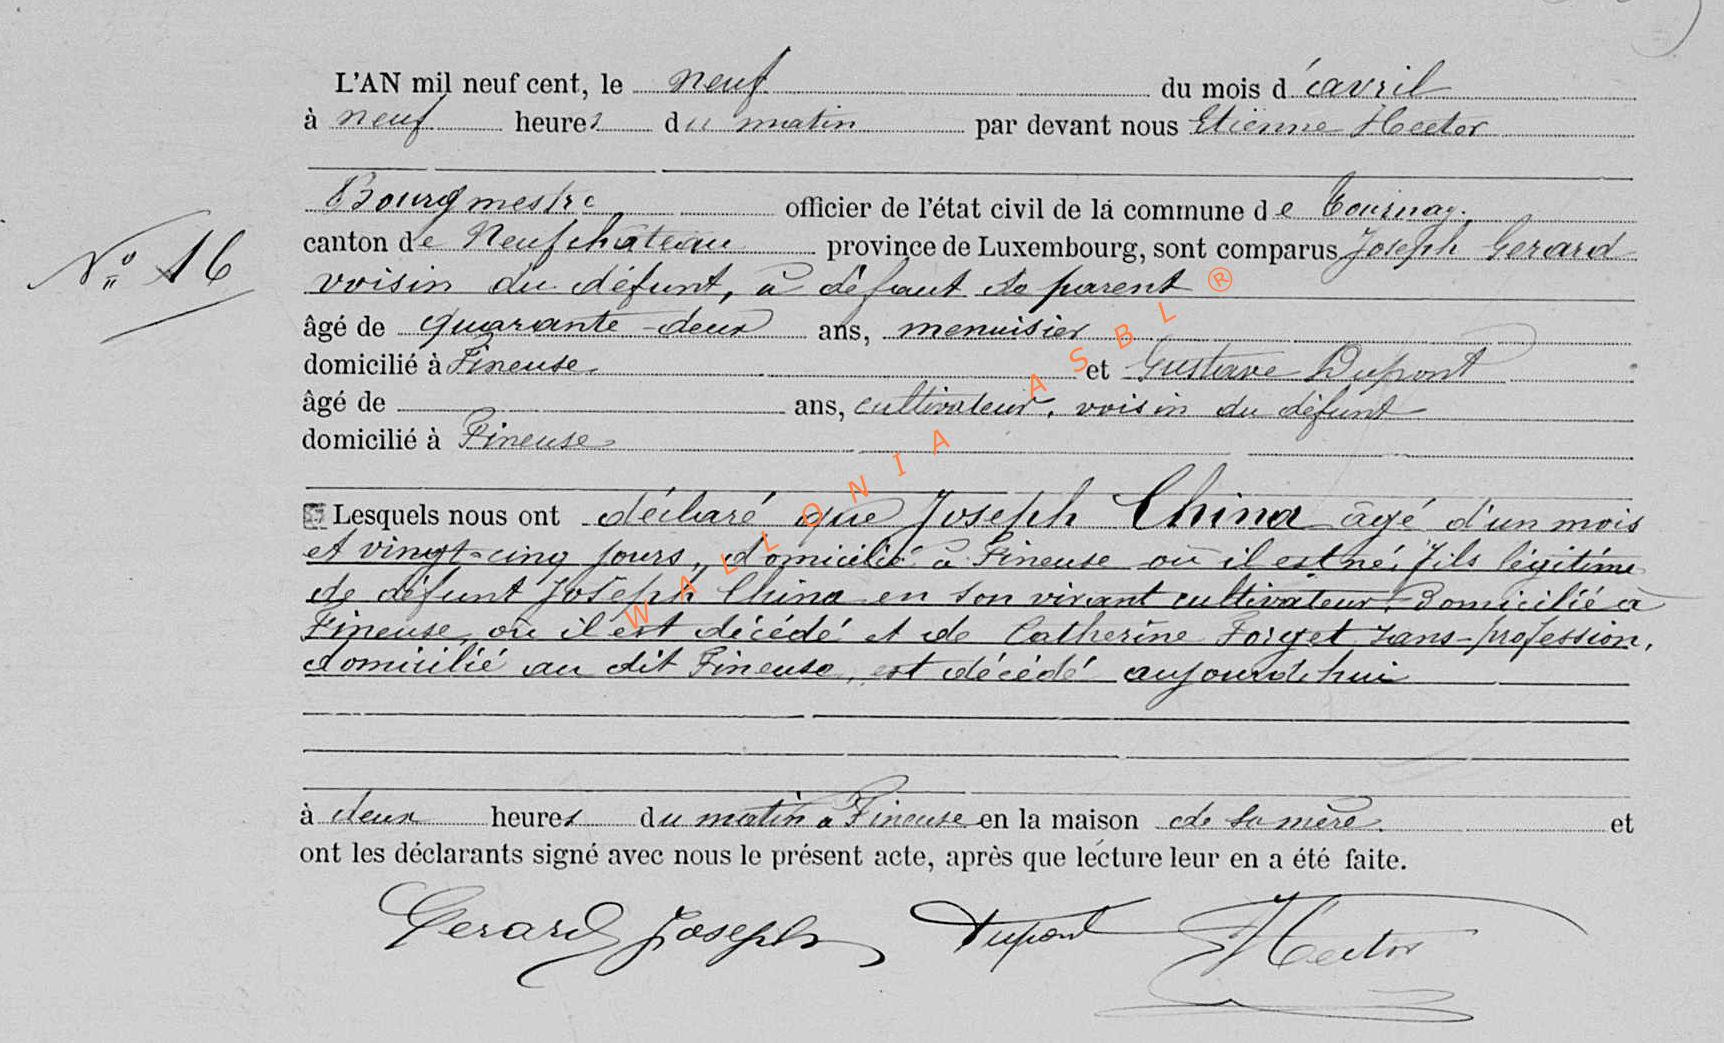 L'AN mil neuf cent, le neuf du mois d'avril
à neuf heures du matin par devant nous Etienne Hector
Bourgmestre officier de l'état civil de la commune de Tournay,
N° 16
canton de Neufchâteau province de Luxembourg, sont comparus Joseph Gerard
voisin du défunt, à défaut de parent
âgé de quarante-deux ans, menuisier
domicilié à Fineuse et Gustave Dupont
âgé de ans, cultivateur, voisin du défunt
domicilié à Fineuse
Lesquels nous ont déclaré que Joseph China âgé d'un mois
et vingt-cinq jours, domicilié à Fineuse où il est né, fils légitime
de défunt Joseph China en son vivant cultivateur, domicilié à
Fineuse, où il est décédé et de Catherine Forget sans-profession,
domicilié au dit Fineuse, est décédé aujourd'hui
à deux heures du matin à Fineuse en la maison de sa mère. et
ont les déclarants signé avec nous le présent acte, après que lecture leur en a été faite.
Gerard Joseph Dupont Hector
WALLONIA ASBL ®